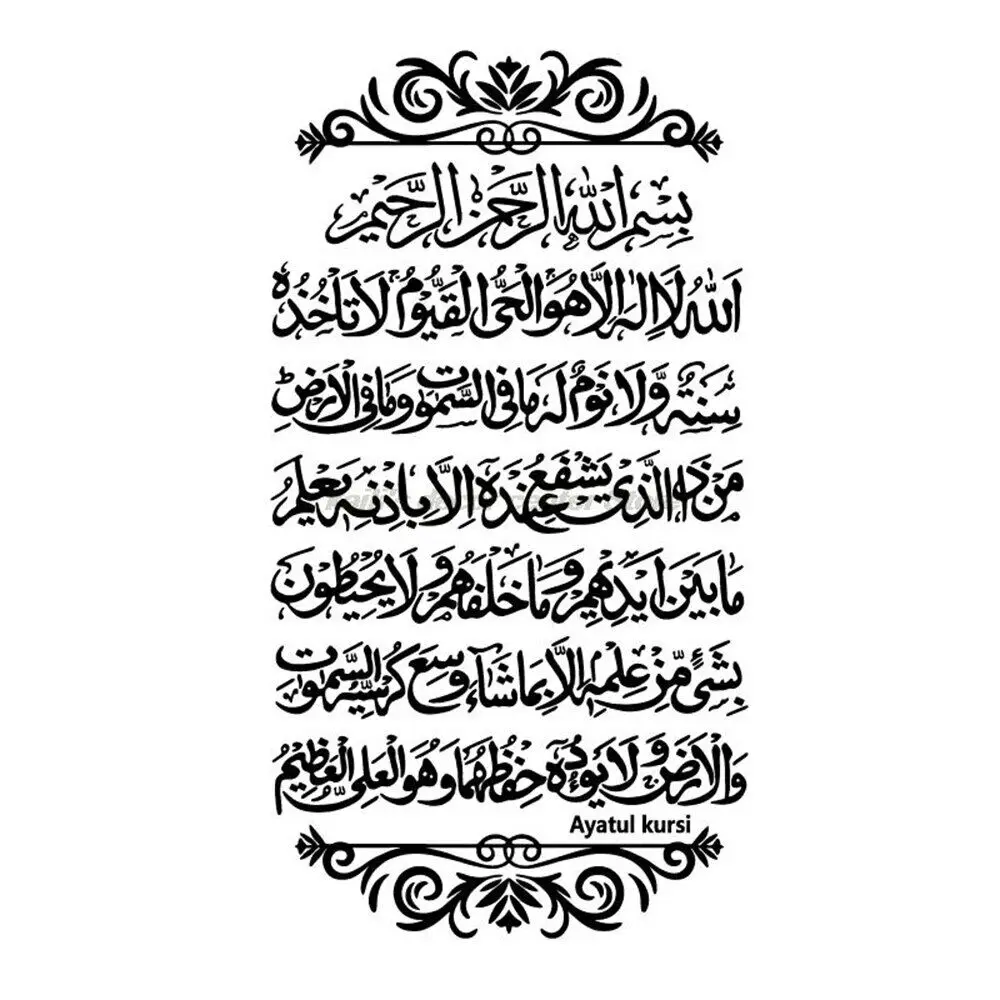 بِسْمِ اللهِ الرَّحْمٰنِ الرَّحِيْمِ
اَللهُ لَا اِلٰهَ اِلَّا هُوَ الْحَيُّ الْقَيُّوْمُ لَا تَاْخُذُهٗ
سِنَةٌ وَّلَا نَوْمٌ لَهٗ مَا فِى السَّمٰوٰتِ وَمَا فِى الْاَرْضِ ط
مَنْ ذَا الَّذِىْ يَشْفَعُ عِنْدَهٗ اِلَّا بِاِذْنِهٖ يَعْلَمُ
مَا بَيْنَ اَيْدِيْهِمْ وَمَا خَلْفَهُمْ وَلَا يُحِيْطُوْنَ
بِشَىْءٍ مِّنْ عِلْمِهٖ اِلَّا بِمَا شَآءَ وَسِعَ كُرْسِيُّهُ السَّمٰوٰتِ
وَالْاَرْضَ وَلَا يَئُوْدُهٗ حِفْظُهُمَا وَهُوَ الْعَلِىُّ الْعَظِيْمُ
Ayatul kursi